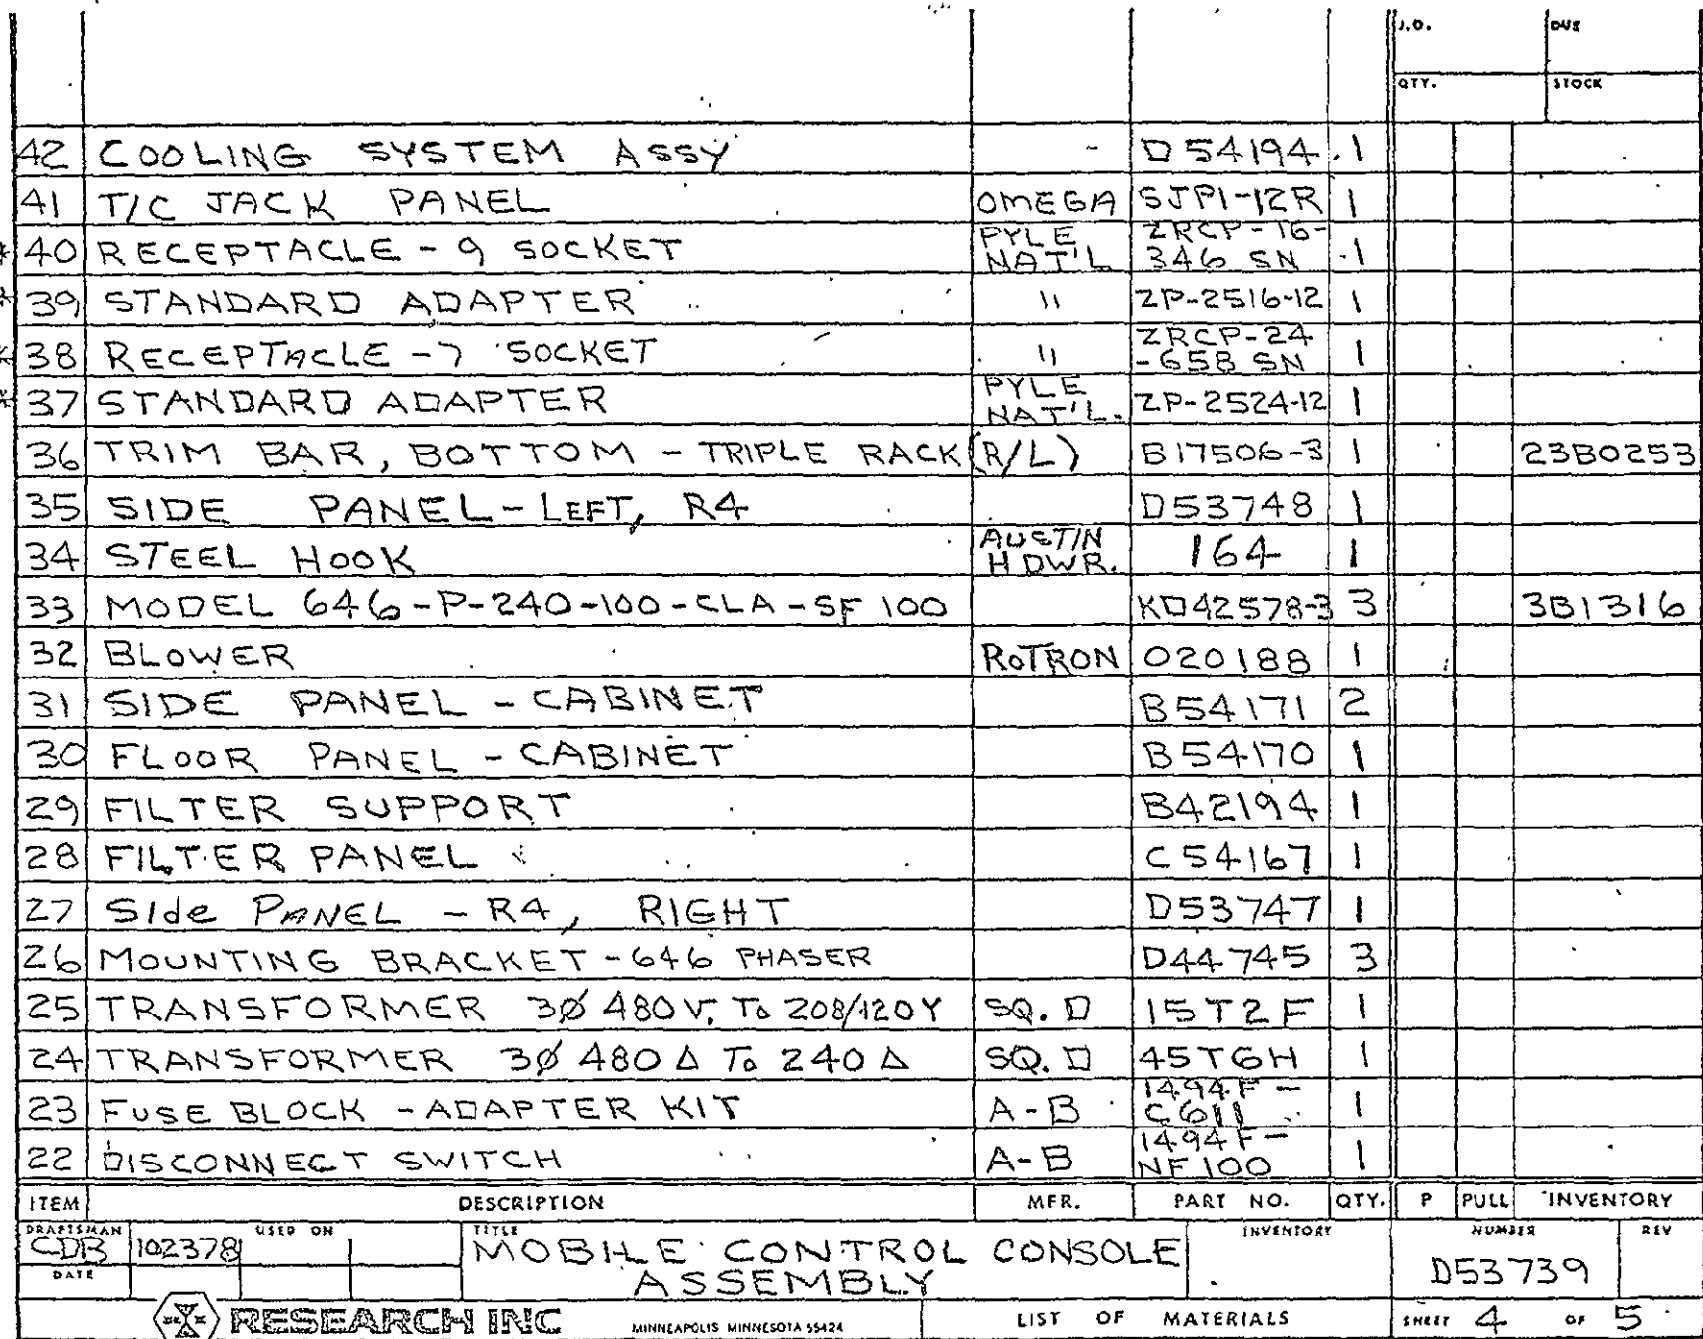 J.O. DUE
QTY. STOCK
42 COOLING SYSTEM ASSY - D54194 1
41 T/C JACK PANEL OMEGA SJP1-12R 1
* 40 RECEPTACLE - 9 SOCKET PYLE NAT'L ZRCP-16-346 SN 1
* 39 STANDARD ADAPTER " ZP-2516-12 1
* 38 RECEPTACLE - 7 SOCKET " ZRCP-24-65B SN 1
* 37 STANDARD ADAPTER PYLE NAT'L. ZP-2524-12 1
36 TRIM BAR, BOTTOM - TRIPLE RACK (R/L) B17506-3 1 23B0253
35 SIDE PANEL - LEFT, R4 D53748 1
34 STEEL HOOK AUSTIN HDWR. 164 1
33 MODEL 646-P-240-100-CLA-SF 100 KD42578-3 3 3B1316
32 BLOWER ROTRON 020188 1
31 SIDE PANEL - CABINET B54171 2
30 FLOOR PANEL - CABINET B54170 1
29 FILTER SUPPORT B42194 1
28 FILTER PANEL C54167 1
27 SIde PANEL - R4, RIGHT D53747 1
26 MOUNTING BRACKET - 646 PHASER D44745 3
25 TRANSFORMER 3Ø 480V. To 208/120Y SQ. D 15T2F 1
24 TRANSFORMER 3Ø 480 Δ To 240 Δ SQ. D 45T6H 1
23 FUSE BLOCK - ADAPTER KIT A-B 1494F-C611 1
22 DISCONNECT SWITCH A-B 1494F-NF100 1
ITEM DESCRIPTION MFR. PART NO. QTY. P PULL INVENTORY
DRAFTSMAN USED ON TITLE INVENTORY NUMBER REV
CDB 102378 MOBILE CONTROL CONSOLE
DATE ASSEMBLY D53739
RESEARCH INC MINNEAPOLIS MINNESOTA 55424 LIST OF MATERIALS SHEET 4 OF 5